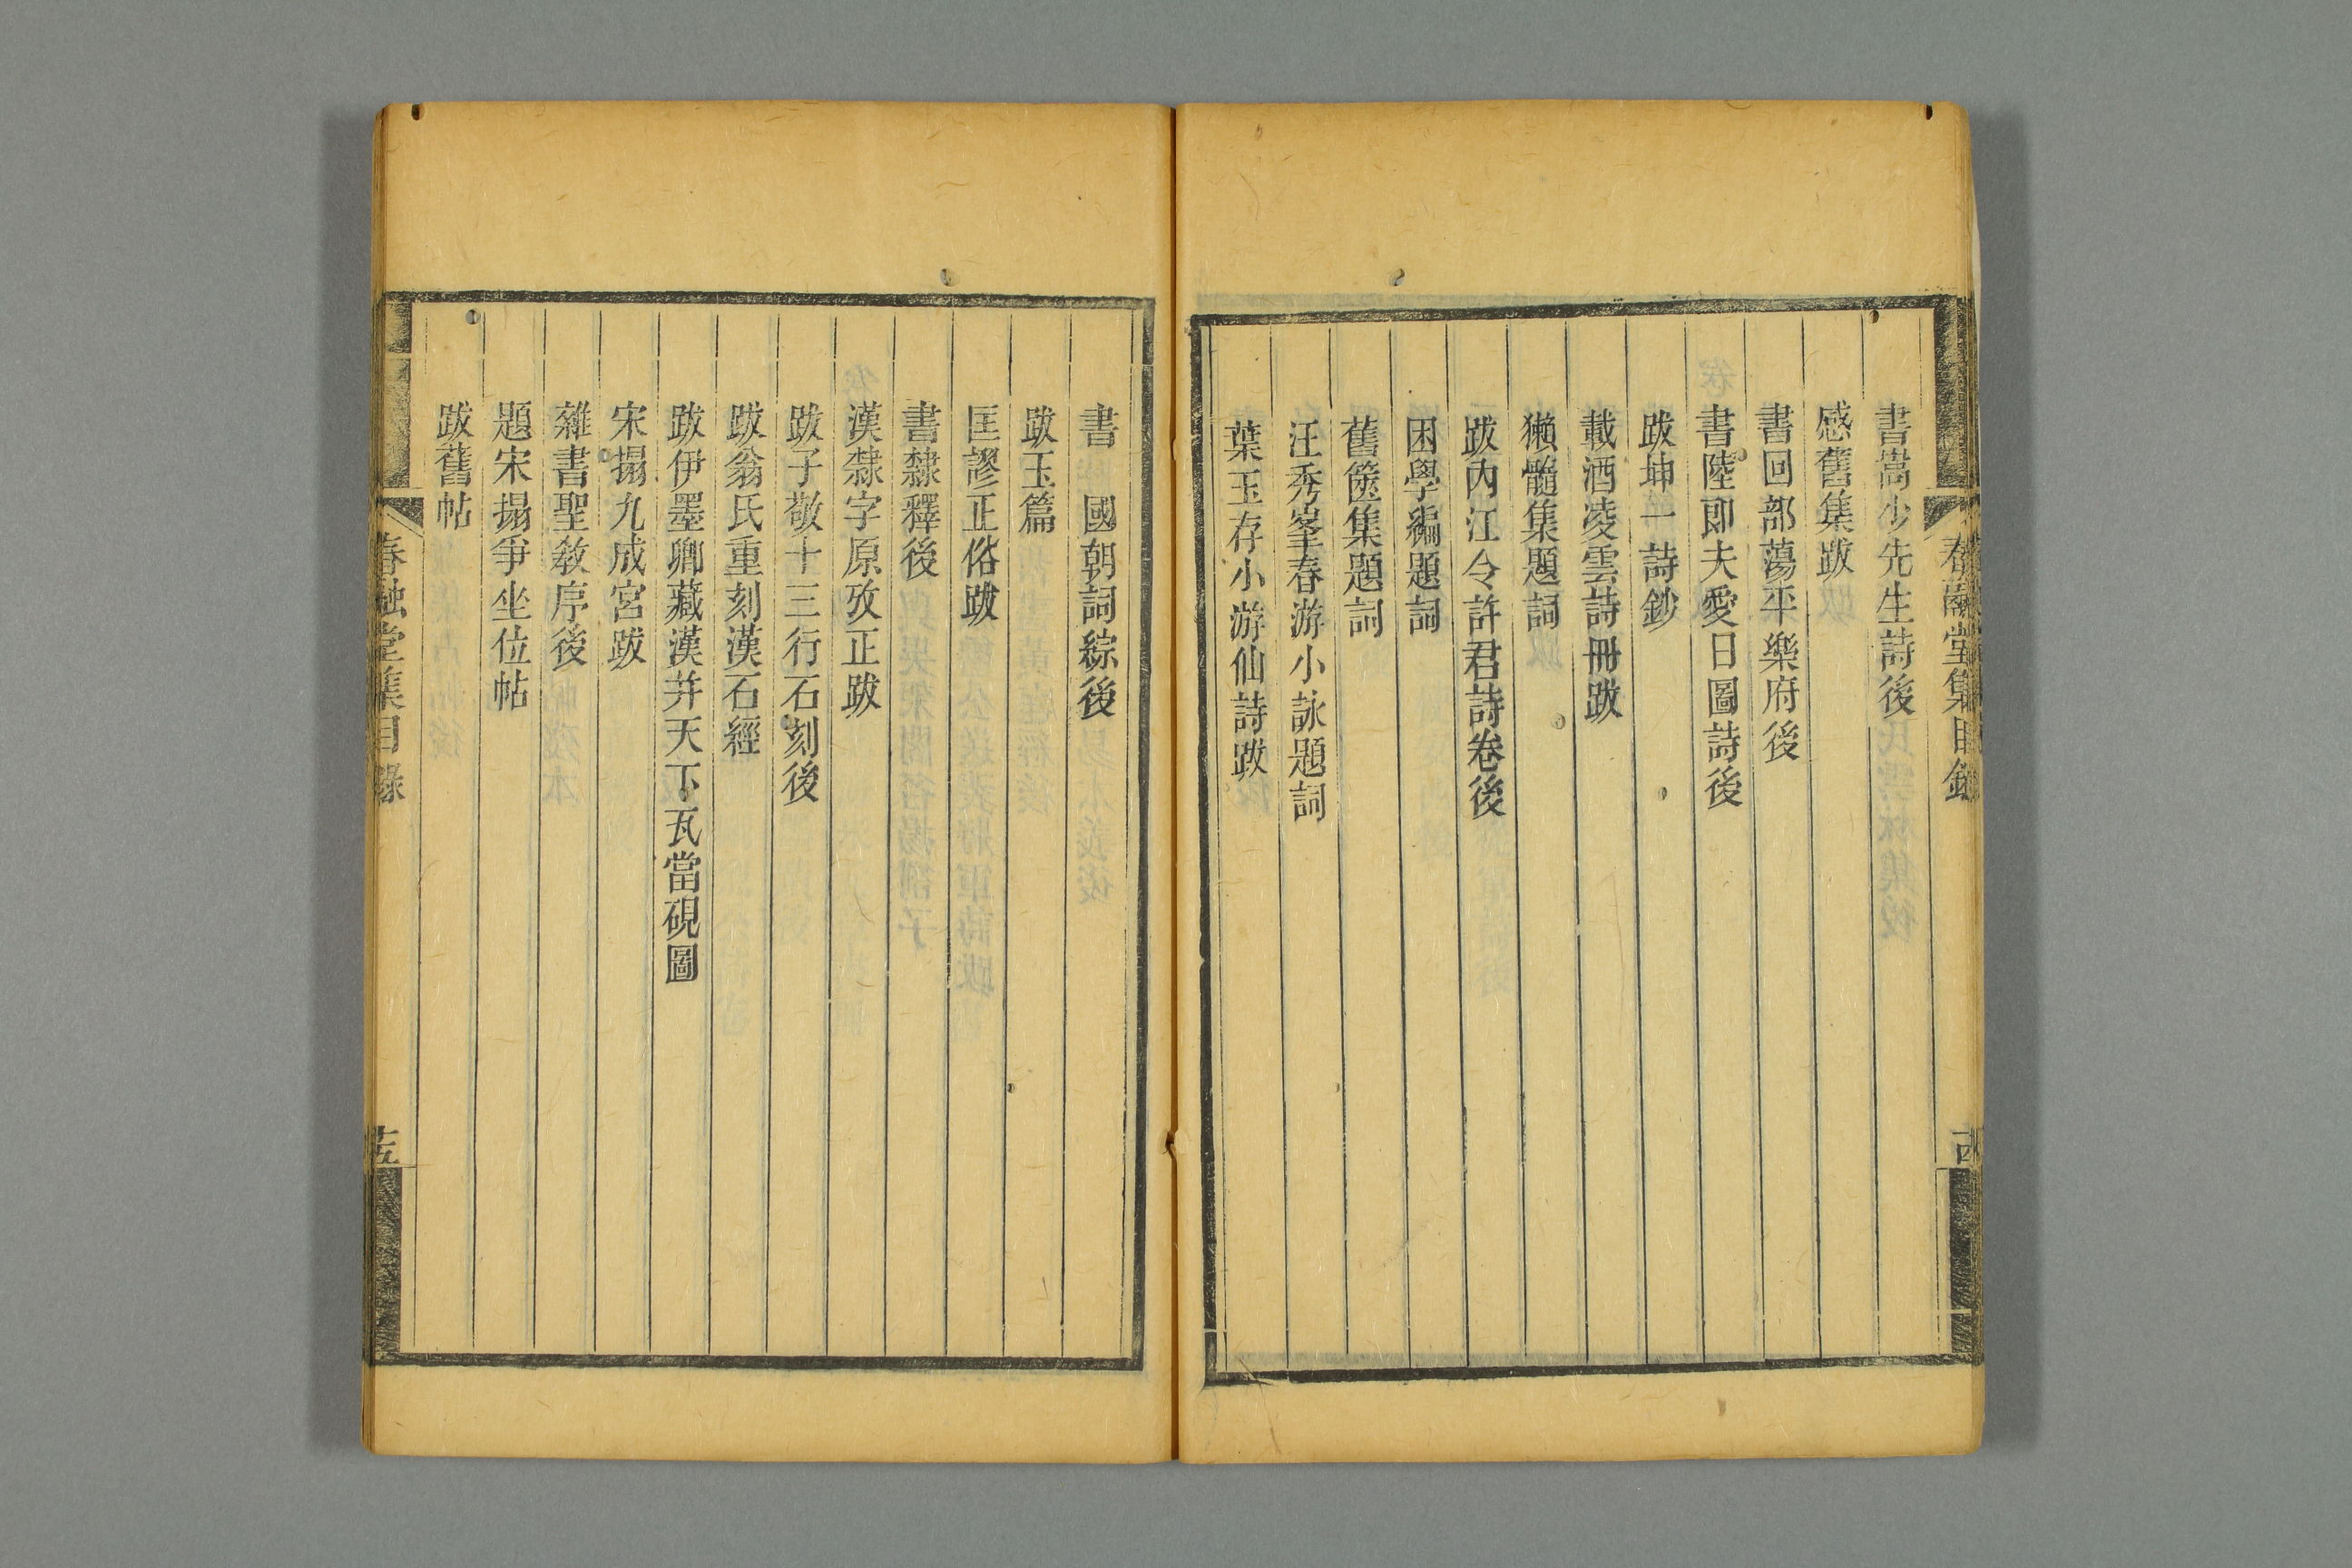 春融堂集目錄
十四
書嵩少先生詩後
感舊集跋
書回部蕩平樂府後
書陸郎夫愛日圖詩後
跋坤一詩鈔
載酒凌雲詩冊跋
獺髓集題詞
跋內江令許君詩卷後
困學編題詞
舊篋集題詞
汪秀峯春游小詠題詞
葉玉存小游仙詩跋
書　國朝詞綜後
跋玉篇
匡謬正俗跋
書隸釋後
漢隸字原攷正跋
跋子敬十三行石刻後
跋翁氏重刻漢石經
跋伊墨卿藏漢并天下瓦當硯圖
宋搨九成宮跋
雜書聖敎序後
題宋搨爭坐位帖
跋舊帖
春融堂集目錄
十五